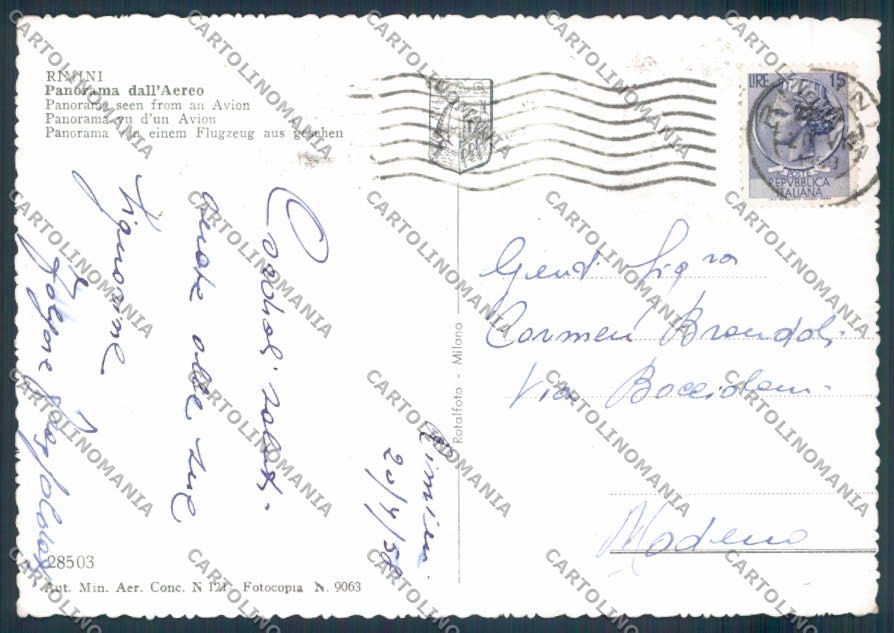 RIMINI
Panorama dall'Aereo
Panorama seen from an Avion
Panorama vu d'un Avion
Panorama von einem Flugzeug aus gesehen
LIRE 15
POSTE
REPVBBLICA
ITALIANA
Cordiali saluti
anche alle sue
Signorine
Rimini
Rotalfoto - Milano
Gent. Sig.ra
Carmen Brandoli
Via
Modena
28503
Aut. Min. Aer. Conc. N 121 - Fotocopia N. 9063
CARTOLINOMANIA